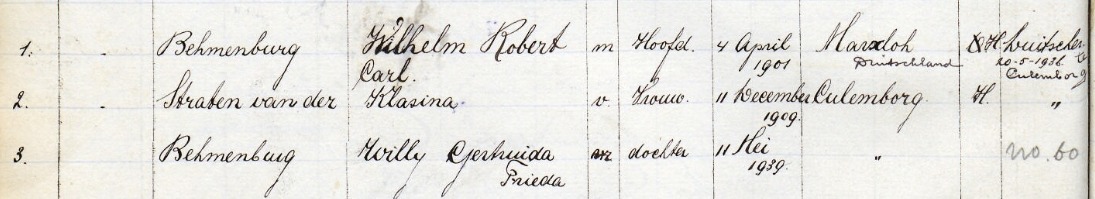 1. - Behmenburg Wilhelm Robert m Hoofd. 4 April Marxloh H. Duitscher
Carl. 1901 Deutschland 20-5-1936
Culemborg
2. - Straten van der Klasina v. Vrouw. 11 December Culemborg. H. "
1909.
3. Behmenburg Willy Gerhuida dochter 11 Mei " no. 60
Frieda 1939.